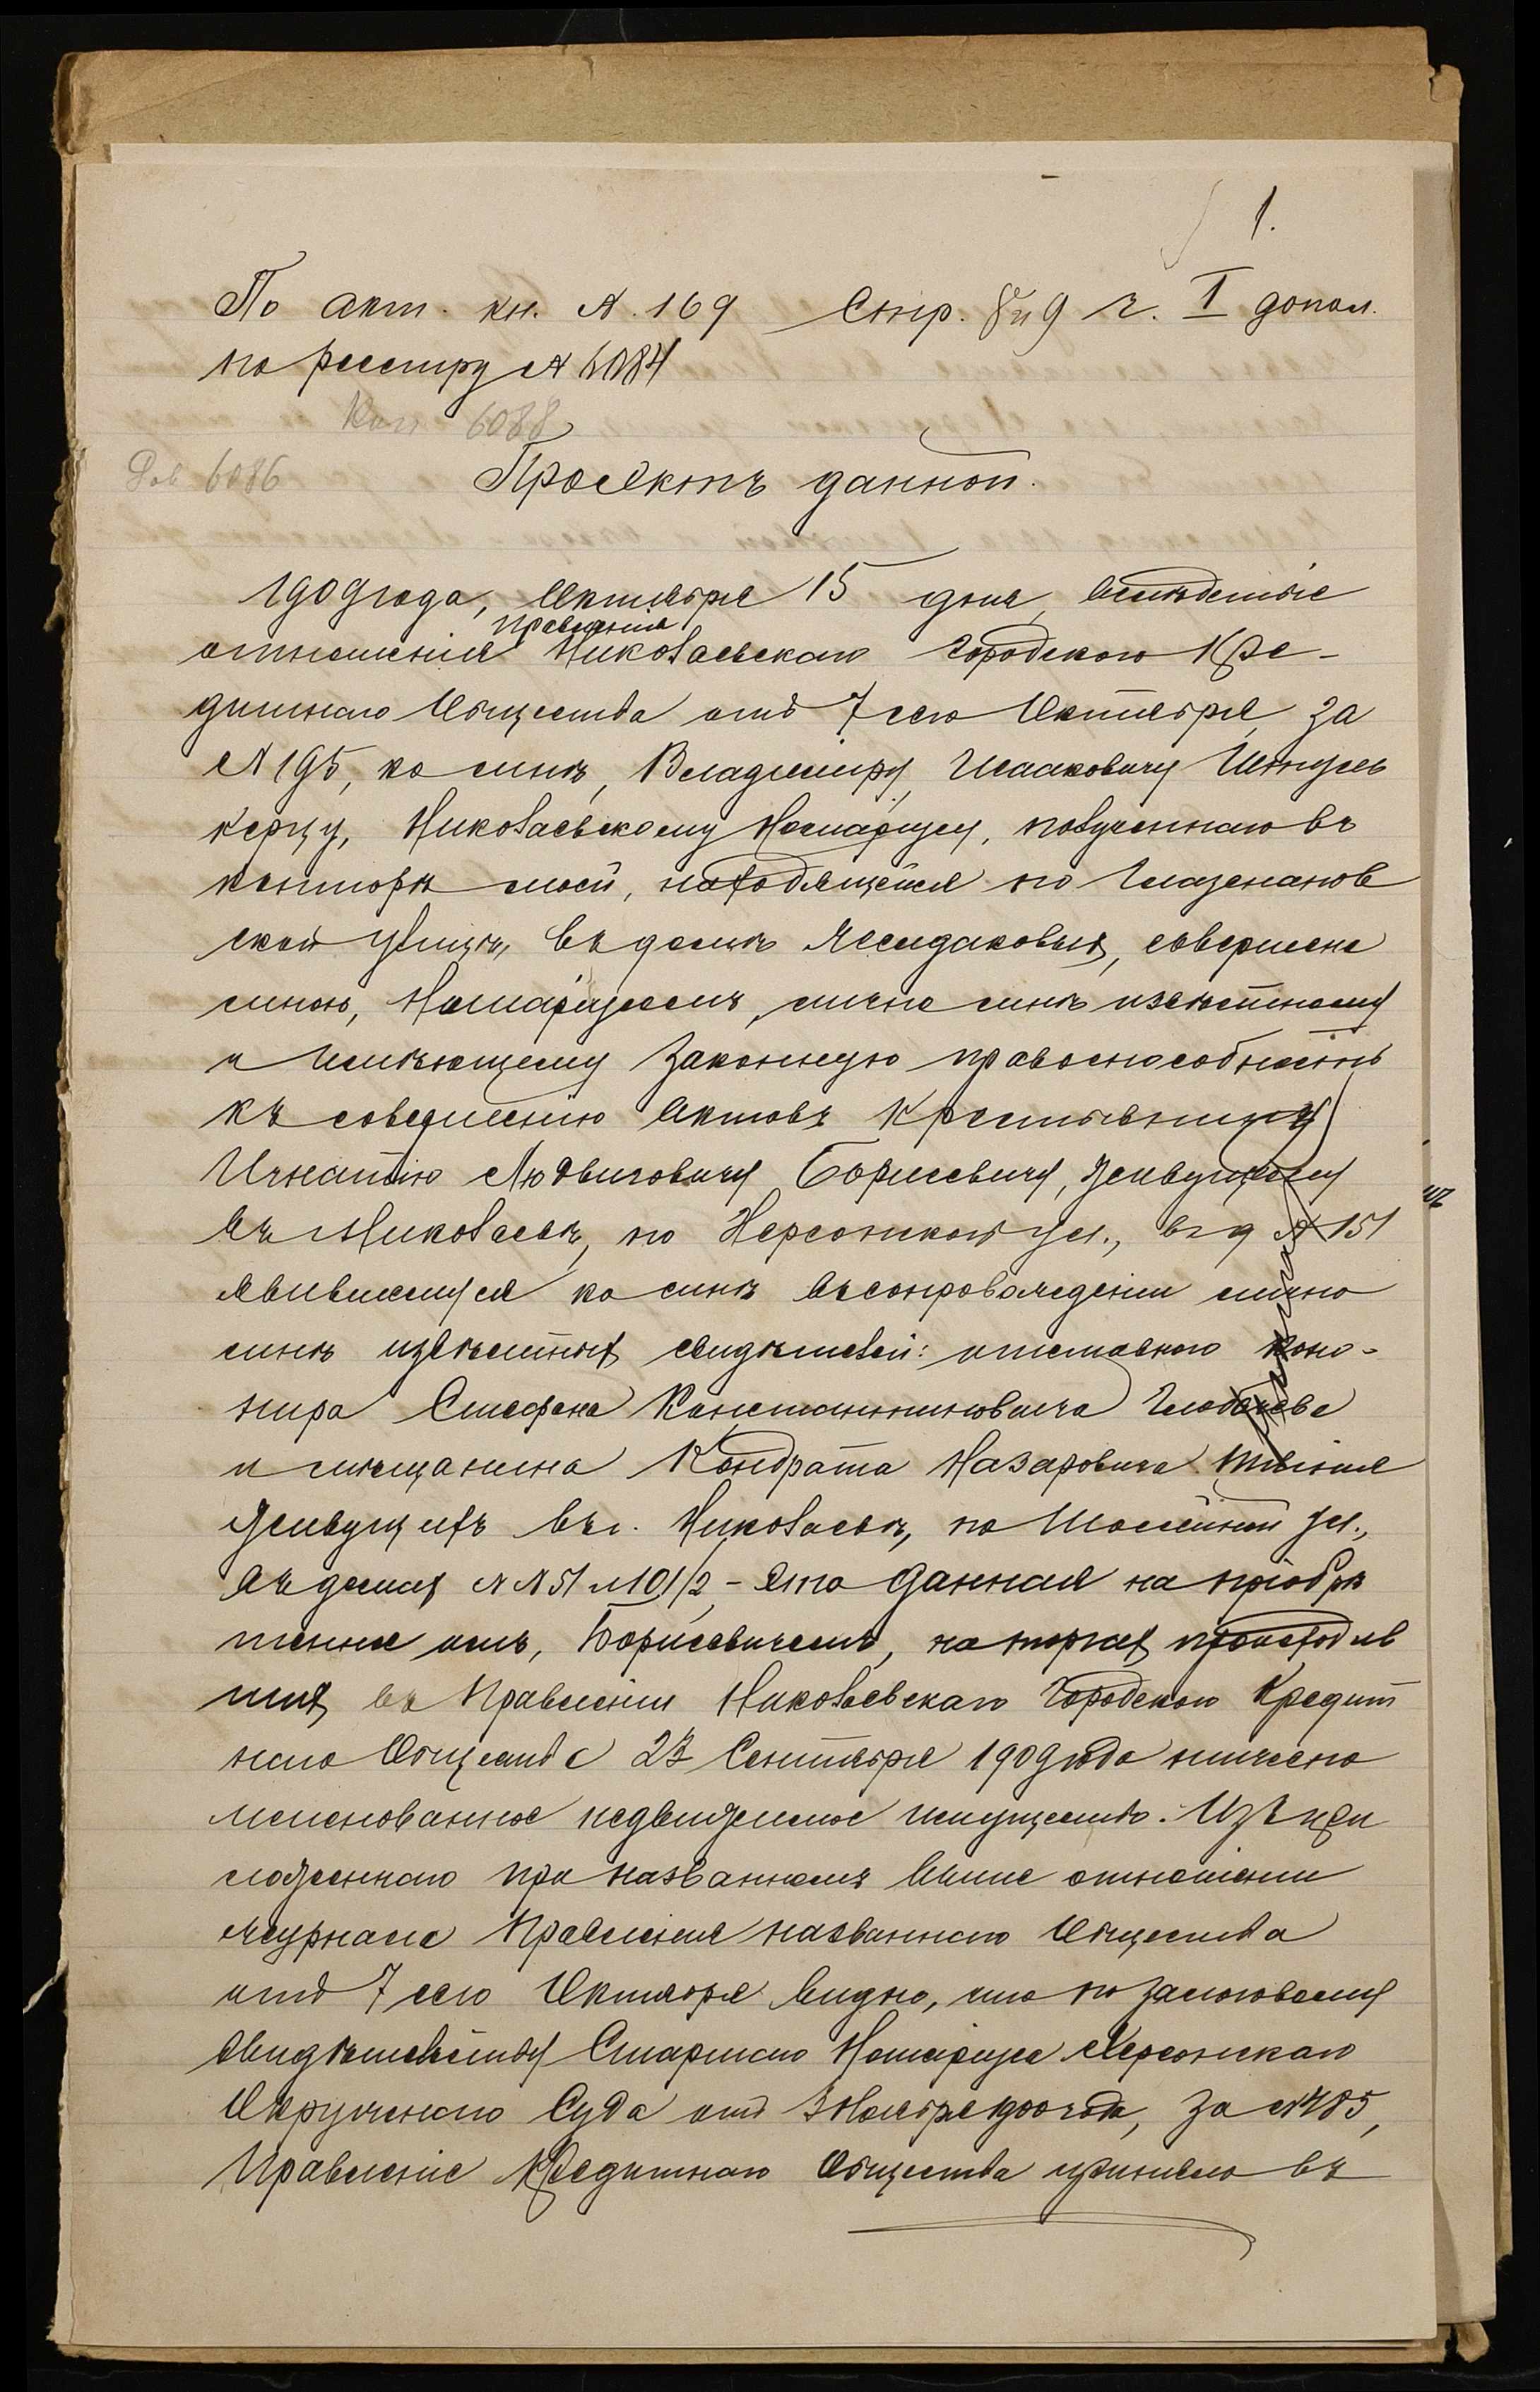 1.
По акт. кн. № 169 Стр. 8 и 9 ч. I допол.
по реестру № 6084
Коп 6088
Дов 6086
Проэктъ данной.
1909 года, Октября 15 дня, вслѣдствіе
Правленія
отношенія Николаевскаго Городского Кре-
дитнаго Общества отъ 7 сего Октября, за
№ 195, ко мнѣ, Владиміру Исааковичу
Николаевскому Нотаріусу, полученнаго въ
конторѣ моей, находящейся по Глазенапов
ской улицѣ, въ домѣ совершена
мною, Нотаріусомъ, лично мнѣ извѣстному
и имѣющему законную правоспособность
къ совершенію актовъ крестьянину
Игнатію Людвиговичу Борисевичу, живущему
въ Николаевѣ, по Херсонской ул., въ д № 151
явившемуся ко мнѣ въ сопровожденіи лично
мнѣ извѣстныхъ свидѣтелей: отставного
Стефана Константиновича
и мѣщанина Кондрата Назаровича
живущихъ въ г. Николаевѣ, по ул.,
въ домахъ №№ 51 и 101/2, - эта данная на пріобрѣ
тенное имъ, Борисевичемъ, на торгахъ происходив
шихъ въ Правленіи Николаевскаго Городского Кредит
наго Общества 23 Сентября 1909 года нижепо
именованное недвижимое имущество. Изъ при
ложеннаго при названномъ выше отношеніи
журнала Правленія названнаго Общества
отъ 7 сего Октября видно, что по залоговому
свидѣтельству Старшаго Нотаріуса Херсонскаго
Окружнаго Суда отъ 3 Ноября 1900 года, за № 485,
Правленіе Кредитнаго Общества приняло въ